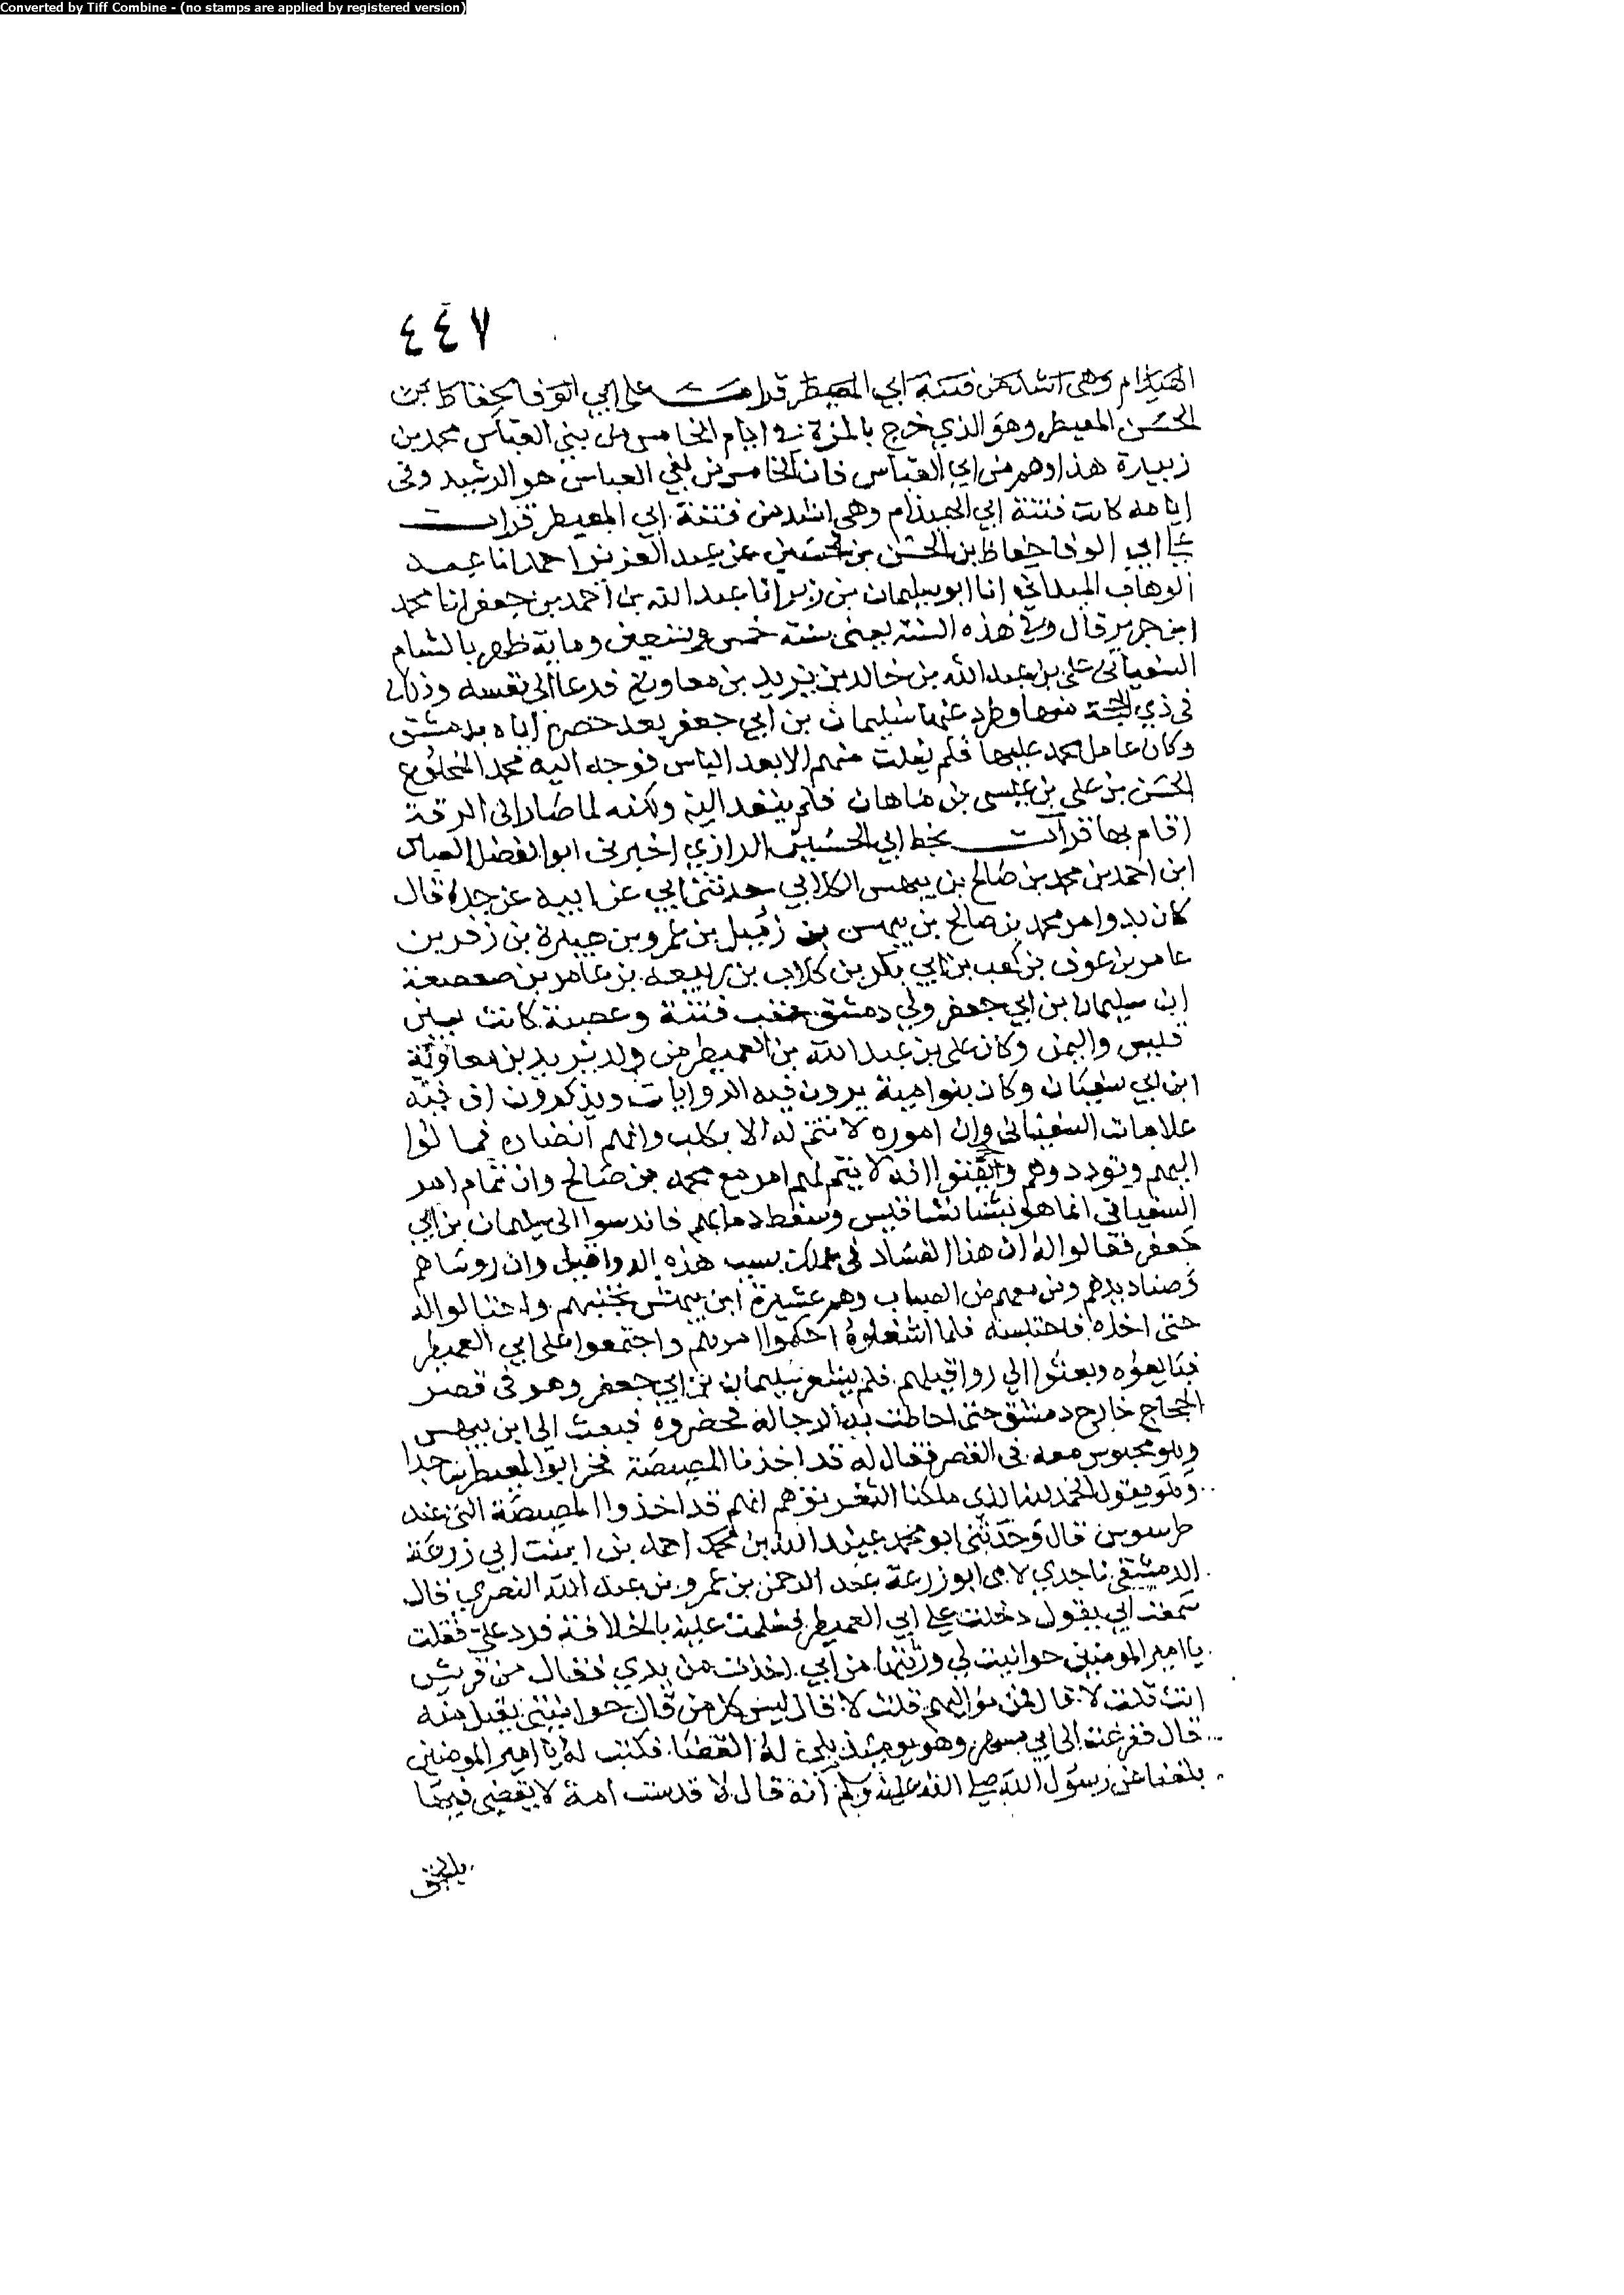 Converted by Tiff Combine - (no stamps are applied by registered version)
٤٤٧
الهيذام وهي اشد من فتنة ابي العميطر قرات على ابي الوفا حفاظ بن
الحسن المعيطر وهو الذي خرج بالمزة في ايام الخامس من بني العباس محمد بن
زبيدة هذا وهم من ابي العباس فان الخامس من بني العباس هو الرشيد وفى
ايامه كانت فتنة ابي الهيذام وهي اشد من فتنة ابي المعيطر قرات
على ابي الوفا حفاظ بن الحسن بن الحسين عن عبد العزيز احمد انا عبد
الوهاب الميداني انا ابو سليمان بن زبر انا عبد الله بن احمد بن جعفر انا محمد
ابن جرير قال وفي هذه السنة يعني سنة خمس وتسعين وماية ظهر بالشام
السفياني علي بن عبد الله بن خالد بن يزيد بن معاوية فدعا الى نفسه وذلك
فى ذي الحجة منها وطرد عنها سليمان بن ابي جعفر بعد حصره اياه بدمشق
وكان عامل محمد عليها فلم يفلت منهم الا بعد الياس فوجه اليه محمد المخلوع
الحسن بن علي بن عيسى بن ماهان فلم ينفد اليه ولكنه لما صار الى الرقة
اقام بها قرات بخط ابي الحسين الرازي اخبرني ابو الفضل العباس
ابن احمد بن محمد بن صالح بن بيهس الكلابي حدثني ابي عن ابيه عن جده قال
كان بدو امر محمد بن صالح بن بيهس بن زميل بن عمرو بن هبيرة بن زفر بن
عامر بن عوف بن كعب بن ابي بكر بن كلاب بن ربيعه بن عامر بن صعصعة
ان سليمان بن ابي جعفر ولي دمشق عقب فتنة وعصبية كانت بين
قيس واليمن وكان علي بن عبد الله بن العميطر من ولد يزيد بن معاوية
ابن ابي سفيان وكان بنو امية يرون فيه الروايات ويذكرون ان فيه
علامات السفياني وان اموره لا تتم له الا بكلب وانهم انصاره فمالوا
اليهم وتوددوهم وايقنوا انه لا يتم لهم امر مع محمد بن صالح وان تمام امر
السفياني انما هو قيس وسفط دمايهم فاندسوا الى سليمان بن ابي
جعفر فقالوا له ان هذا الفساد فى عملك بسبب هذه الدواقيل وان روساهم
وصناديدهم ومن معهم من الضباب وهم عشيرة ابن بيهس واحتالوا له
حتى اخذه فاحتبسه فلما اشغلوه احكموا امرهم واجتمعوا على ابي العميطر
فبايعوه وبعثوا الى رواقيلهم فلم يشعر سليمان بن ابي جعفر وهو فى قصر
الحجاج خارج دمشق حتى احاطت به الرجاله فحضروه فبعث الى ابن بيهس
وهو محبوس معه فى القصر فقال له قد اخذنا المصيصة فخر ابو المعيطر ساجدا
وهو يقول الحمد لله الذى ملكنا الثغر توهم انهم قد اخذوا المصيصة التى عند
طرسوس قال وحدثني ابو محمد عبد الله بن محمد احمد بن ابي زرعة
الدمشقي نا جدي لامى ابو زرعة عبد الرحمن بن عمرو بن عبد الله النصري قال
سمعت ابي يقول دخلت على ابي العميطر فسلمت عليه بالخلافة فرد علي فقلت
يا امير المومنين حوانيت لي ورثتها من ابي اخذت من يدي فقال من قريش
انت قلت لا قال فمن مواليهم قلت لا قال ليس كل من قال حوانيتى يقبل منه
قال ففرغت الى ابي مسهر وهو يومئذ يلي له القضا فكتب له يا امير المومنين
بلغنا عن رسول الله صلى الله عليه وسلم انه قال لا قدست امة لا يقضى فيها